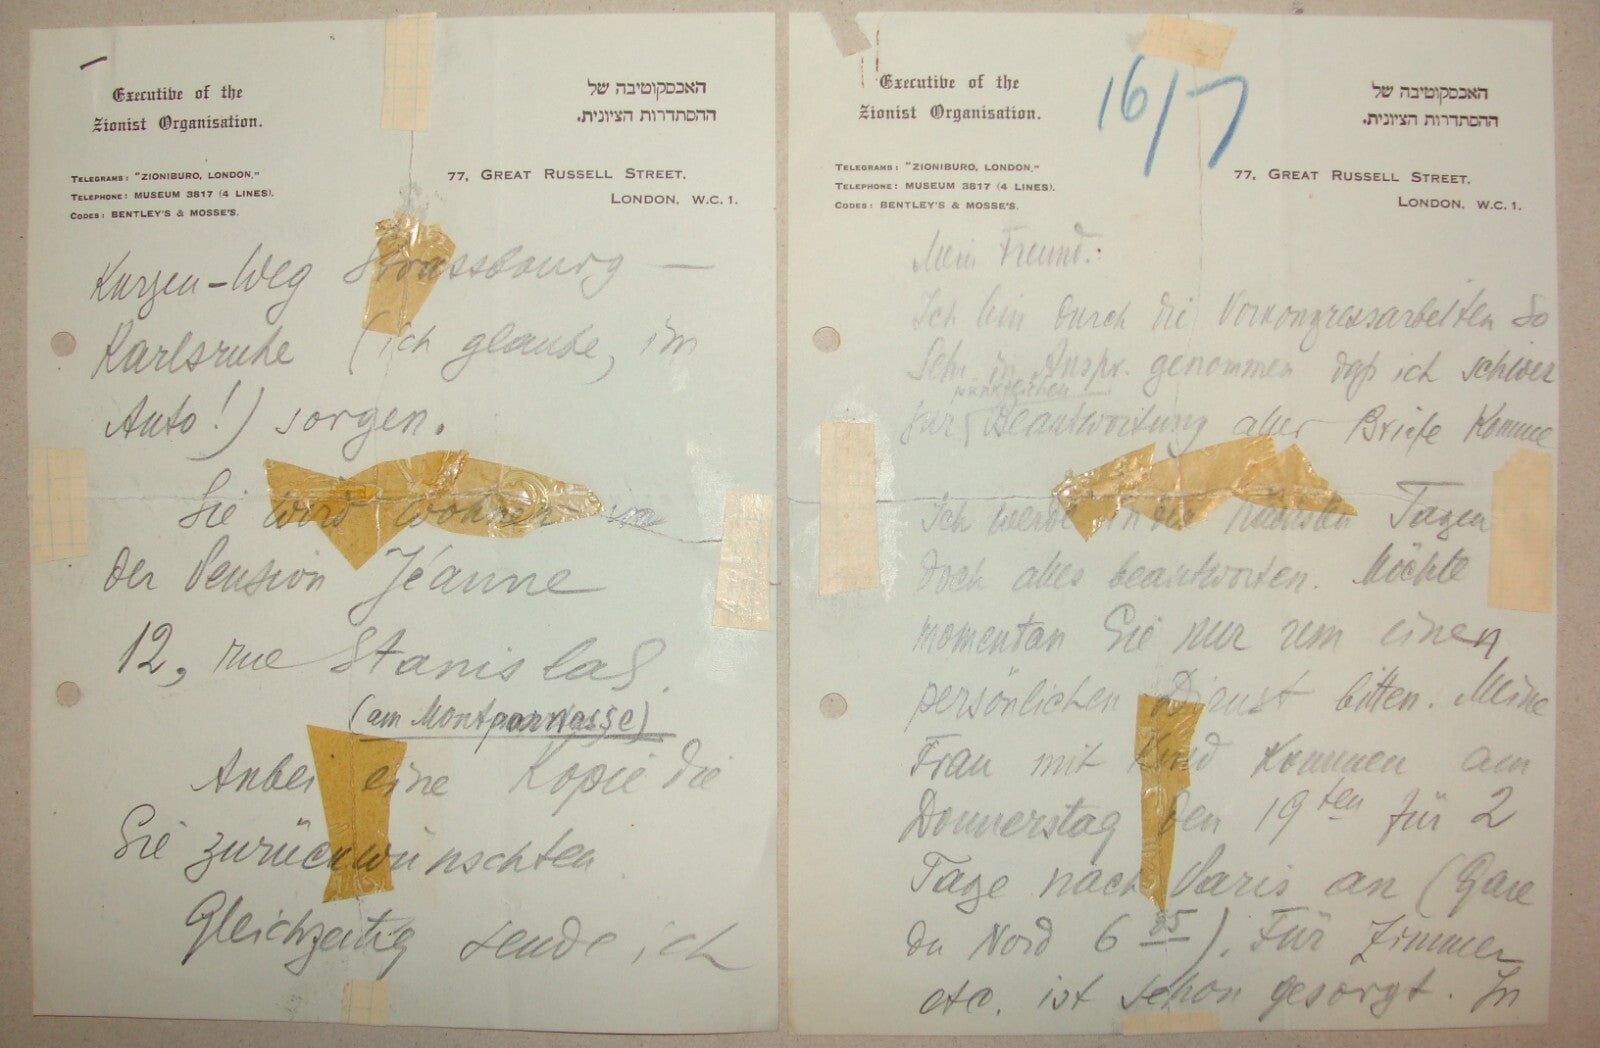 Executive of the
Zionist Organisation.
האכסקוטיבה של
ההסתדרות הציונית.
TELEGRAMS: "ZIONIBURO, LONDON."
TELEPHONE: MUSEUM 3817 (4 LINES).
CODES: BENTLEY'S & MOSSE'S.
77, GREAT RUSSELL STREET,
LONDON, W.C.1.
Kurzen-Weg Strassbourg —
Karlsruhe (ich glaube, im
Auto!) sorgen.
Sie wird wohnen in
der Pension Jéanne
12, rue Stanislas.
(am Montparnasse)
Anbei eine Kopie die
Sie zurückwünschten
Gleichzeitig sende ich
Executive of the
Zionist Organisation.
16/7
האכסקוטיבה של
ההסתדרות הציונית.
TELEGRAMS: "ZIONIBURO, LONDON."
TELEPHONE: MUSEUM 3817 (4 LINES).
CODES: BENTLEY'S & MOSSE'S.
77, GREAT RUSSELL STREET,
LONDON, W.C.1.
Mein Freund:
Ich bin durch die Vorkongressarbeiten so
sehr in Anspr. genommen daß ich schwer
pünktlichen
zur Beantwortung aller Briefe komme
Ich werde in den nächsten Tagen
doch alles beantworten. Möchte
momentan Sie nur um einen
persönlichen Dienst bitten. Meine
Frau mit Kind kommen am
Donnerstag den 19ten für 2
Tage nach Paris an (Gare
du Nord 6). Für Zimmer
etc. ist schon gesorgt. In